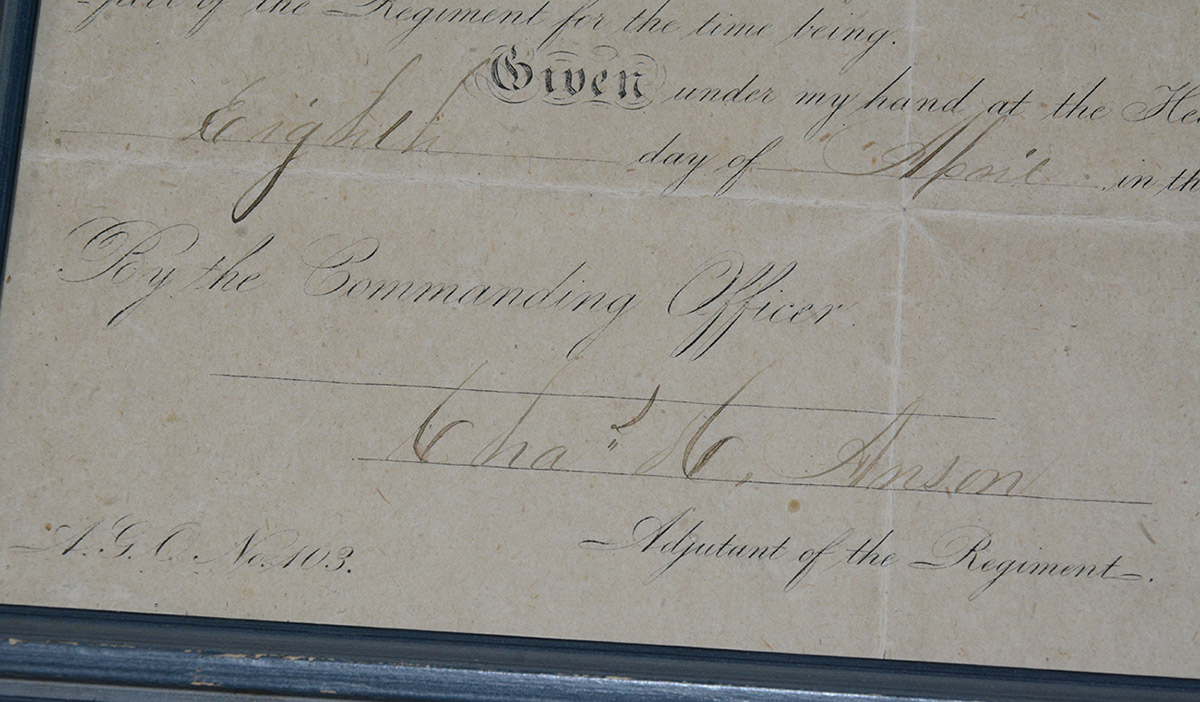 of the Regiment for the time being.
Given under my hand at the
Eighth day of April in
By the Commanding Officer.
Chas H. Anson
A. G. O. No. 103. Adjutant of the Regiment.